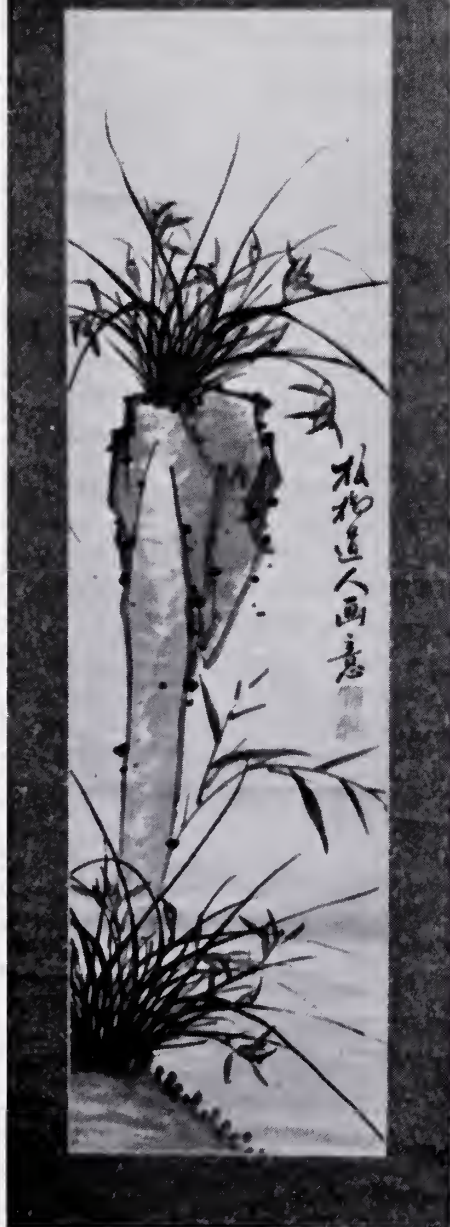 板橋道人画意